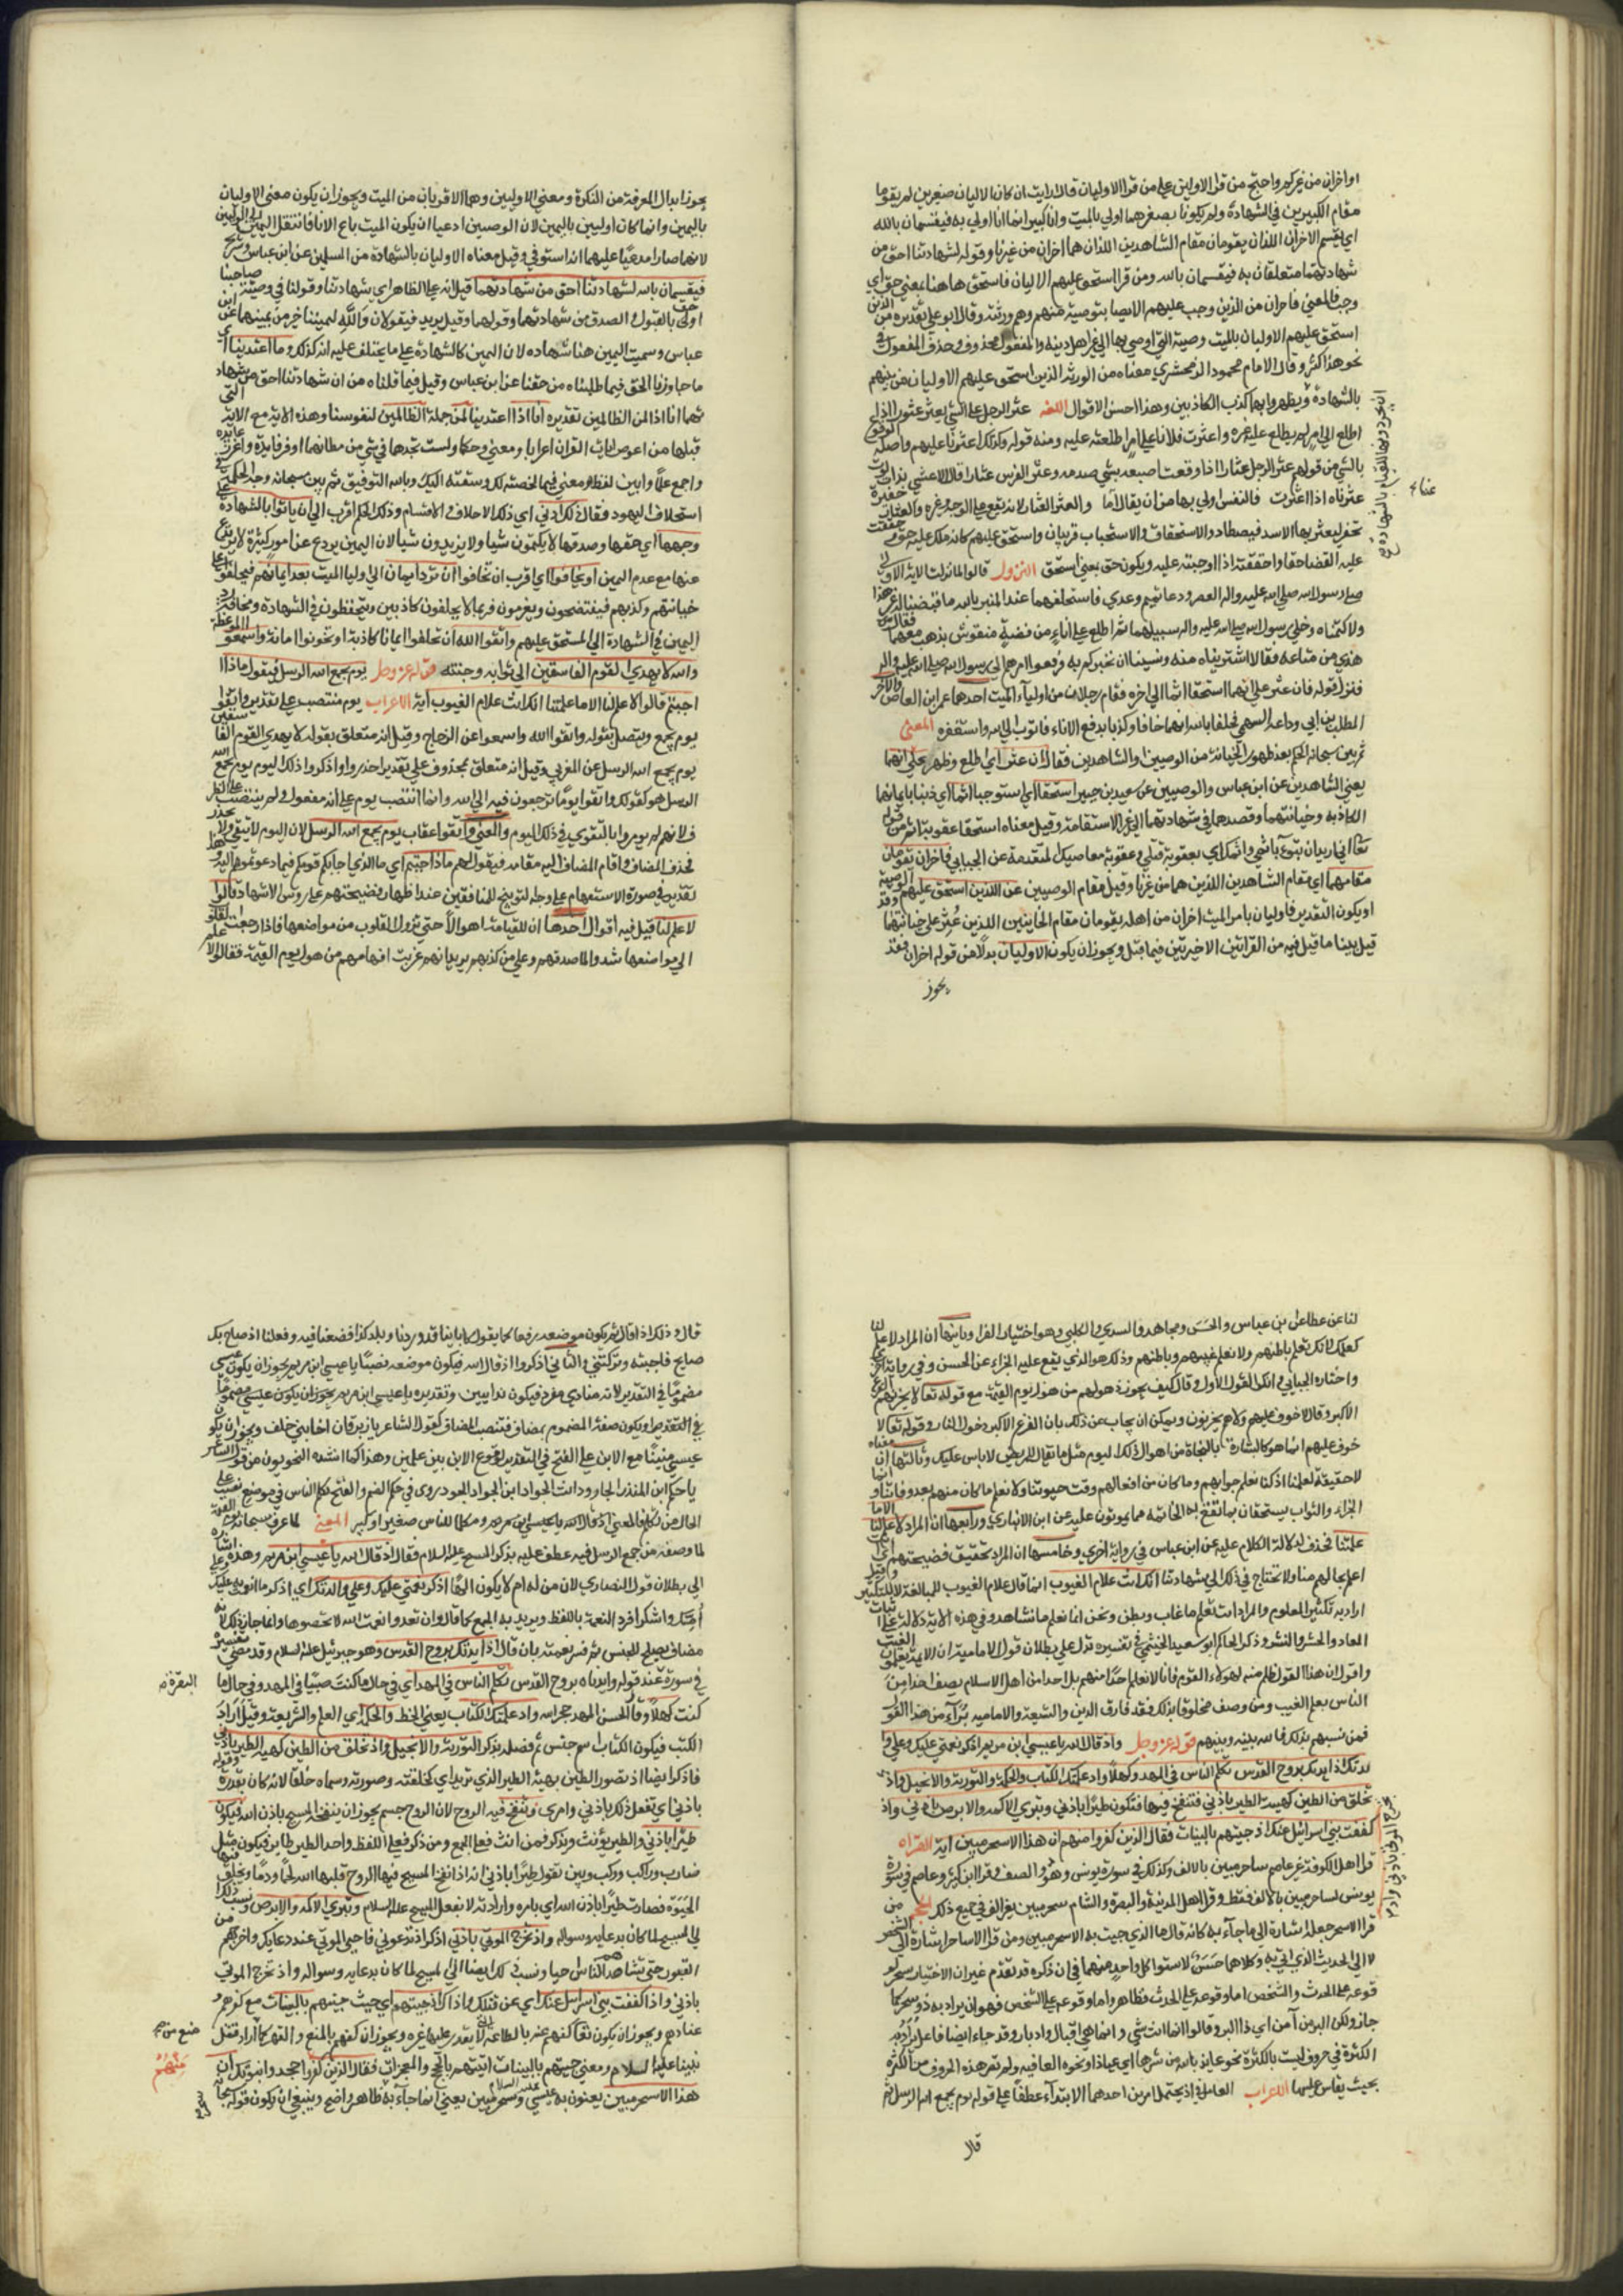 او اخران من غيركم واحتج من قرا الاولين على من قرا الاوليان قال ارايت ان كانا الاوليان صغيرين لم يقوما
مقام الكبيرين في الشهادة ولم يكونا بصغرهما اولي بالميت وان كبيرا انما انا اولي به فيقسمان بالله
اي يقسم الاخران اللذان يقومان مقام الشاهدين اللذان هما اخران من غيرنا وقوله لشهادتنا احق من
شهادتهما متعلقان به فيقسمان بالله ومن قرا استحق عليهم الاوليان فاستحق هاهنا بمعني حق اي
وجب فالمعني فاخران من الذين وجب عليهم الايصا بتوصية منهم وهم ورثته وقال ابو علي تقديره من الذين
استحق عليهم الاوليان بالميت وصيته التي اوصي بها الي غير اهل دينه والمفعول محذوف وحذف المفعول في
نحو هذا كثر وقال الامام محمود الزمخشري معناه من الورثه الذين استحق عليهم الاوليان من بينهم
بالشهادة ويظهروا بهما كذب الكاذبين وهذا احسن الاقوال اللغه عثر الرجل علي الشي يعثر عثورا اذا
اطلع الي امر لم يطلع عليه غيره واعثرت فلانا علي امر اطلعته عليه ومنه قوله وكذلك اعثرنا عليهم واصله الوقوع
بالشي من قولهم عثر الرجل عثارا اذا وقعت اصبعه بشي صدمه وعثر الفرس عثارا قال الاعشي بذات لوث
عفرناه اذا عثرت فالتعس اولي بها من ان يقال لعا والعثر الغبار لانه يقع علي الوجه وغيره والعاثور حفيرة
تحفر ليعثر بها الاسد فيصطاد والاستحقاق والاستيجاب قريبان واستحق عليهم كانه ملك عليه حق وحققت
عليه القضا حقا واحققته اذا اوجبته عليه ويكون حق بمعني استحق النزول قالوا لما نزلت الاية الاولي
صلي رسول الله صلي الله عليه واله العصر ودعا تميم وعدي فاستحلفهما عند المنبر بالله ما قبضنا له غير هذا
ولا كتمناه وخلي رسول الله صلي الله عليه واله سبيلهما ثم اطلع علي اناء من فضة منقوش بذهب معهما فقالوا
هذي من متاعه فقالا اشتريناه منه ونسينا ان نخبركم به فرفعوا امرهم الي رسول الله صلي الله عليه واله
فنزل قوله فان عثر علي انهما استحقا اثما الي اخره فقام رجلان من اولياء الميت احدهما عمرو ابن العاص والاخر
المطلب بن ابي وداعه السهمي فحلفا بالله انهما خانا وكذبا بدفع الاناء فاتوب الي الله واستغفره المعني
ثم بين سبحانه الحكم بعد ظهور الخيانه من الوصيين والشاهدين فقال فان عثر اي اطلع وظهر علي انهما
يعني الشاهدين عن ابن عباس والوصيين عن سعيد بن جبير استحقا اي استوجبا اثما اي ذنبا بايمانهما
الكاذبه وخيانتهما وقصدهما في شهادتهما الي غير الاستقامة وقيل معناه استحقا عقوبة اثم من قوله
تعالي اني اريد ان تبوء باثمي واثمك اي بعقوبة قتلي وعقوبة معاصيك المتقدمه عن الجبايي فاخران يقومان
مقامهما اي مقام الشاهدين اللذين هما من غيرنا وقيل مقام الوصيين من اللذين استحق عليهم الوصية
او يكون التقدير فاوليان بامر الميت اخران من اهله يقومان مقام الخاينين اللذين عثر علي خيانتهما
قيل بينا ما قيل فيه من القراتين الاخيرتين فيما قبل ويجوز ان يكون الاوليان بدلا من قوله اخران فقد
يجوز
يجوز ابدال المعرفة من النكرة ومعني الاوليين وهما الاقربان من الميت ويجوز ان يكون معني الاوليان
باليمين وانما كانا اوليين باليمين لان الوصيين ادعيا ان يكون الميت باع الانا فانتقل اليمين الي الوليين
لانهما صارا مدعيا عليهما انه استوفي وقيل معناه الاوليان بالشهادة من المسلمين عن ابن عباس وشريح
فيقسمان بالله لشهادتنا احق من شهادتهما قيل انه علي الظاهر اي شهادتنا وقولنا في وصية صاحبنا
اولي بالقبول والصدق من شهادتهما وقولهما وقيل يريد فيقولان والله ليميننا خير من يمينهما عن ابن
عباس وسميت اليمين هنا شهاده لان اليمين كالشهادة علي ما يختلف عليه انه كذلك وما اعتدينا اي
ما جاوزنا الحق فيما طلبناه من حقنا عن ابن عباس وقيل فيما قلناه من ان شهادتنا احق من شهاد
تهما انا اذا لمن الظالمين تقديره انا ان اعتدينا لمن جملة الظالمين لنفوسنا وهذه الايه مع الاية التي
قبلها من اعوص ايات القران اعرابا ومعني وحكما ولست تجدها في شي من مظانها اوفر فايدة واغزر عايده
واجمع علما وابين لفظا ومعني فيما لخصته لك وسقته اليك وبالله التوفيق ثم بين سبحانه وجه الحكمه في
استحلاف اليهود فقال ذلك ادني اي ذلك الاحلاف والاقسام وذلك الحكم اقرب الي ان ياتوا بالشهادة علي
وجهها اي حقها وصدقها لا يكتمون شيا ولا يزيدون شيا لان اليمين يردع عن امور كثيرة لا يرتدع
عنها مع عدم اليمين او يخافوا اي اقرب ان يخافوا ان ترد ايمان الي اوليا الميت بعد ايمانهم فيحلفوا علي
خيانتهم وكذبهم فيفتضحون ويغرمون فربما لا يحلفون كاذبين ويتحفظون في الشهادة ومخافة رد
اليمين في الشهادة الي المستحق عليهم واتقوا الله ان تحلفوا ايمانا كاذبة او تخونوا امانة واسمعوا الموعظة
والله لا يهدي القوم الفاسقين الي ثوابه وجنته قوله عز وجل يوم يجمع الله الرسل فيقول ماذا
اجبتم قالوا لا علم لنا الا ما علمتنا انك انت علام الغيوب اية الاعراب يوم ينتصب علي تقدير واتقوا
يوم يجمع ويتصل بقوله واتقوا الله واسمعوا عن الزجاج وقيل انه متعلق بقوله لا يهدي القوم الفاسقين
يوم يجمع الله الرسل عن المغربي وقيل انه متعلق بمحذوف علي تقدير احذروا واذكروا ذلك اليوم يوم يجمع الله
الرسل هو كقولك واتقوا يوما ترجعون فيه الي الله وانما انتصب يوم علي انه مفعول ولم ينتصب علي الظرف
لانهم لم يومروا بالتقوي في ذلك اليوم والمعني واتقوا عقاب يوم يجمع الله الرسل لان اليوم لا يتقي ولا يحذر
فحذف المضاف واقام المضاف اليه مقامه فيقول لهم ماذا اجبتم اي ما الذي اجابكم قومكم فيما دعوتموهم اليه
تقدير في صورة الاستفهام علي وجه التوبيخ للمنافقين عند اظهار فضيحتهم علي رؤس الاشهاد قالوا
لا علم لنا قيل فيه اقوال احدها ان للقيامة اهوالا حتي تزول القلوب من مواضعها فاذا رجعت القلوب
الي مواضعها شهدوا لمن صدقهم وعلي من كذبهم يريد انهم عزبت افهامهم من هول يوم القيمة فقالوا لا علم
لنا عن عطا عن ابن عباس والحسن ومجاهد والسدي والكلبي وهو اختيار الفرا وثانيها ان المراد لا علم لنا
كعلمك لانك تعلم باطنهم ولا نعلم غيبهم وباطنهم وذلك هو الذي يقع عليه الجزاء عن الحسن وفي رواية اخري
واختاره الجبايي وانكر القول الاول وقال كيف يجوز ذهولهم من هول يوم القيمة مع قوله تعالي لا يحزنهم الفزع
الاكبر وقال لا خوف عليهم ولا هم يحزنون ويمكن ان يجاب عن ذلك بان الفزع الاكبر دخول النار وقوله تعالي لا
خوف عليهم انما هو كالبشارة بالنجاة من اهوال ذلك اليوم مثل ما يقال للمريض لا باس عليك وثالثها ان معناه
لا حقيقة لعلمنا اذ كنا نعلم جوابهم وما كان من افعالهم وقت حيوتنا ولا نعلم ما كان منهم بعد وفاتنا وانما
الجزاء والثواب يستحقان بما تقع به الخاتمه مما يموتون عليه عن ابن الانباري ورابعها ان المراد لا علم لنا الا ما
علمتنا فحذف لدلالة الكلام عليه عن ابن عباس في رواية اخري وخامسها ان المراد به تحقيق فضيحتهم اي انت
اعلم بحالهم منا ولا تحتاج في ذلك الي شهادتنا انك انت علام الغيوب انما قال علام الغيوب للمبالغة لا للتكثير
اراد به تكثير المعلوم والمراد انت تعلم ما غاب وبطن ونحن انما نعلم ما نشاهد وفي هذه الاية دلالة علي اثبات
المعاد والحشر والنشر وذكر الحاكم ابو سعيد الجشمي في تفسيره تدل علي بطلان قول الاماميه ان الايمه يعلمون الغيب
واقول ان هذا القول ظلم منه لهولاء القوم فانا لا نعلم احدا منهم بل احدا من اهل الاسلام يصف احدا من
الناس بعلم الغيب ومن وصف مخلوقا بذلك فقد فارق الدين والشيعة والاماميه برآء من هذا القول
فمن نسبهم بذلك فالله بينه وبينهم قوله عز وجل واذ قال الله يا عيسي ابن مريم اذكر نعمتي عليك وعلي وا
لدتك اذ ايدتك بروح القدس تكلم الناس في المهد وكهلا واذ علمتك الكتاب والحكمة والتورية والانجيل واذ
تخلق من الطين كهيئة الطير باذني فتنفخ فيها فتكون طيرا باذني وتبري الاكمه والابرص باذني واذ
كففت بني اسرائيل عنك اذ جيتهم بالبينات فقال الذين كفروا منهم ان هذا الا سحر مبين اية القراه
قرا اهل الكوفة غير عاصم ساحر مبين بالالف وكذلك في سورة يونس وهود والصف وقرا ابن كثير وعاصم في سورة
يونس لساحر مبين بالالف فقط وقرا اهل المدينة والبصرة والشام سحر مبين بغير الف في جميع ذلك الحجه من
قرا الا سحر جعله اشارة الي ما جاء به كانه قال ما الذي جيت به الا سحر مبين ومن قرا الا ساحر اشارة الي الشخص
لا الي الحدث الذي اتي به وكلاهما حسن لاستوا كل واحد منهما في ان ذكره قد تقدم غير ان الاختيار سحر لو
قوعه علي الحدث والشخص اما وقوعه علي الحدث فظاهر واما وقوعه علي الشخص فهو ان يراد به ذو سحر كما
جاز ولكن البر من آمن اي ذا البر وقالوا انما انت سير وانما هي اقبال وادبار وقد جاء ايضا فاعل يراد به
الكثرة في حروف ليست بالكثرة نحو عايذ بالله من شرها اي عياذا ونحوه العافيه ولم تصر هذه الحروف من الكثرة
بحيث يقاس عليها الاعراب العامل في اذ يحتمل امرين احدهما الابتداء عطفا علي قوله يوم يجمع الله الرسل ثم
قال
قال وذلك اذ قال فيكون موضعه رفعا كما يقول كانا بنا قد وردنا بلد كذا فصنعنا فيه وفعلنا اذ صاح بك
صايح فاجبته وتركتني والثاني اذكروا اذ قال الله فيكون موضعه نصبا يا عيسي ابن مريم يجوز ان يكون عيسي
مضموما في التقدير لانه منادي مفرد فيكون نداءين وتقديره يا عيسي يا ابن مريم ويجوز ان يكون عيسي مضموما
في التقدير ويكون صفة المضموم بمضاف فتنصب المضاف كقول الشاعر يا زبرقان اخا بني خلف ويجوز ان يكون
عيسي مبنيا مع الابن علي الفتح في التقدير لوقوع الابن بين علمين وهذا كما انشده النحويون من قول الشاعر
يا حكم ابن المنذر الجارود انت الجواد ابن الجواد المحمود روي في حكم الضم والفتح تكلم الناس في موضع نصب علي
الحال من كلمتك والمعني اذ قال الله يا عيسي ابن مريم ومكلما للناس صغيرا وكبيرا المعني لما عرف سبحانه يوم القيمة
لما وصفه من جمع الرسل فيه عطف عليه بذكر المسيح عليه السلام فقال اذ قال الله يا عيسي ابن مريم وهذه اشاره
الي بطلان قول النصاري لان من له ام لا يكون الها اذكر نعمتي عليك وعلي والدتك اي اذكر ما انعم به عليك وعلي
امك واشكر افرد النعمة باللفظ ويريد به الجمع كما قال وان تعدوا نعمت الله لا تحصوها وانما جاز ذلك لانه
مضاف يصلح للجنس ثم فسر نعمته بان قال اذ ايدتك بروح القدس وهو جبرئيل عليه السلام وقد مضي تفسيره
في سورة عند قوله وايدناه بروح القدس تكلم الناس في المهد اي في حال ما كنت صبيا في المهد وفي حال ما
البقرة
كنت كهلا وقال الحسن المهد حجر امه واذ علمتك الكتاب يعني الخط والحكمة اي العلم والشريعة وقيل اراد
الكتب فيكون الكتاب اسم جنس ثم فصله بذكر التورية والانجيل واذ تخلق من الطين كهيئة الطير باذني
فاذكر ايضا اذ تصور الطين بهيئة الطير الذي تريد اي كخلقته وصورته وسماه خلقا لانه كان يقدره وقوله
باذني اي تفعل ذلك باذني وامري وتنفخ فيه الروح لان الروح جسم يجوز ان ينفخه المسيح باذن الله فيكون
طيرا باذني والطير يؤنث ويذكر فمن انث فعلي الجمع ومن ذكر فعلي اللفظ وواحد الطير طاير فيكون مثل
ضارب وراكب وركب وبين بقوله طيرا باذني انه اذا نفخ المسيح فيها الروح قلبها الله لحما ودما ويخلق فيها
الحيوة فصارت طيرا باذن الله اي بامره وارادته لا بفعل المسيح عليه السلام وتبري الاكمه والابرص ونسب ذلك
الي المسيح لما كان بدعايه وسواله واذ تخرج الموتي باذني اي اذكر اذ تدعوني فاحيي الموتي عند دعايك واخرجهم من
القبور حتي يشاهدهم الناس احيا ونسب ذلك ايضا الي المسيح لما كان بدعايه وسواله واذ تخرج الموتي
باذني واذ كففت بني اسرائيل عنك اي عن قتلك واذاك اذ جيتهم اي حيث جيتهم بالبينات مع كفرهم و
عنادهم ويجوز ان يكون تعالي كفهم عنه بالطافه التي لا يقدر عليها غيره ويجوز ان كفهم بالمنع والقهر كما اراد قتل
نبينا عليه السلام ومعني جيتهم بالبينات اتيتهم بالحجج والمعجزات فقال الذين كفروا وجحدوا نبوتك ان
منهم
هذا الا سحر مبين يعنون به عيسي وسحر مبين يعني انما جاء به ظاهر واضح وينبغي ان يكون قوله سبحانه